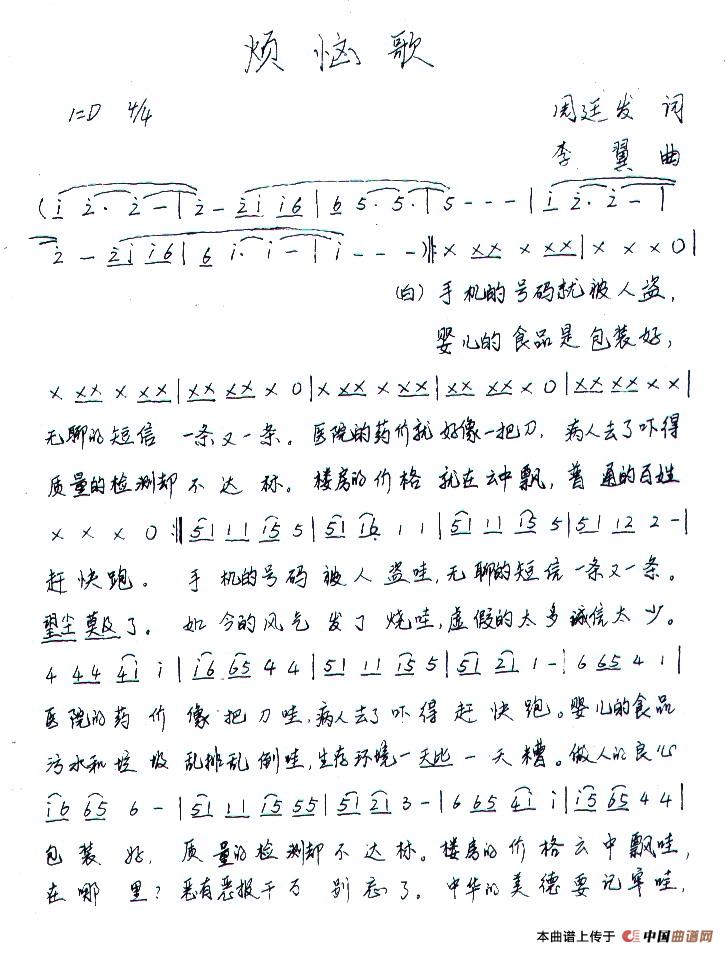 烦恼歌
1=D 4/4
周廷发 词
李翼 曲
(i 2· 2 - | 2 - 2i i6 | 6 5· 5· | 5 - - - | i 2· 2 - |
2 - 2i i6 | 6 i· i - | i - - -)‖: x xx x xx | x x x 0 |
(白) 手机的号码就被人盗,
婴儿的食品是包装好,
x xx x xx | xx xx x 0 | x xx x xx | xx xx x 0 | xx xx x x |
无聊的短信 一条又一条。医院的药价就好像一把刀, 病人去了吓得
质量的检测却不达标。楼房的价格就在云中飘, 普通的百姓
x x x 0 :‖ 51 11 i5 5 | 51 i6 1 1 | 51 11 i5 5 | 51 12 2 - |
赶快跑。 手机的号码被人盗哇, 无聊的短信一条又一条。
望尘莫及了。 如今的风气发了烧哇, 虚假的太多诚信太少。
4 44 41 i | i6 65 4 4 | 51 11 i5 5 | 51 21 1 - | 6 665 4 1 |
医院的药价像把刀哇, 病人去了吓得赶快跑。婴儿的食品
污水和垃圾乱排乱倒哇, 生存环境一天比一天糟。做人的良心
i6 65 6 - | 51 11 i5 55 | 51 21 3 - | 6 665 4i i | i5 65 4 4 |
包装好, 质量的检测却不达标。楼房的价格云中飘哇,
在哪里? 恶有恶报千万别忘了。中华的美德要记牢哇,
本曲谱上传于 中国曲谱网